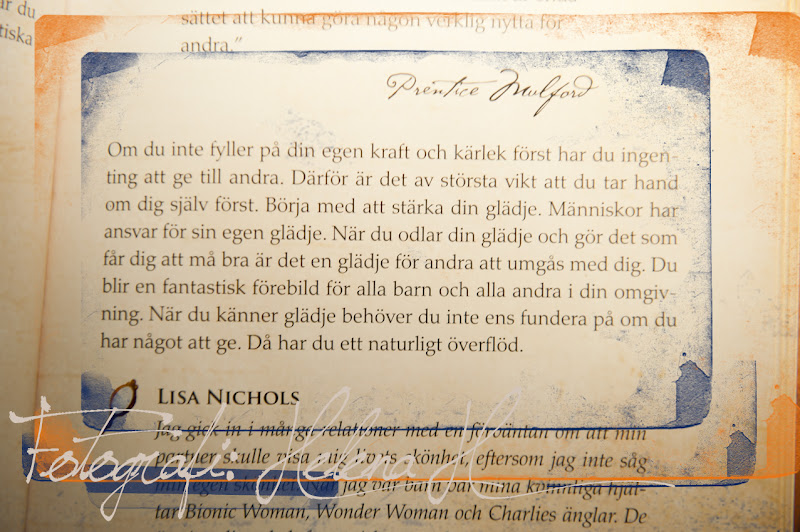 är du
tiska
sättet att kunna göra någon verklig nytta för
andra.”
Prentice Mulford
Om du inte fyller på din egen kraft och kärlek först har du ingen-
ting att ge till andra. Därför är det av största vikt att du tar hand
om dig själv först. Börja med att stärka din glädje. Människor har
ansvar för sin egen glädje. När du odlar din glädje och gör det som
får dig att må bra är det en glädje för andra att umgås med dig. Du
blir en fantastisk förebild för alla barn och alla andra i din omgiv-
ning. När du känner glädje behöver du inte ens fundera på om du
har något att ge. Då har du ett naturligt överflöd.
LISA NICHOLS
Jag gick in i många relationer med en förväntan om att min
partner skulle visa mig livets skönhet, eftersom jag inte såg
min egen skönhet. När jag var barn var mina kvinnliga hjäl-
tar Bionic Woman, Wonder Woman och Charlies änglar. De
Fotografi: Helena H